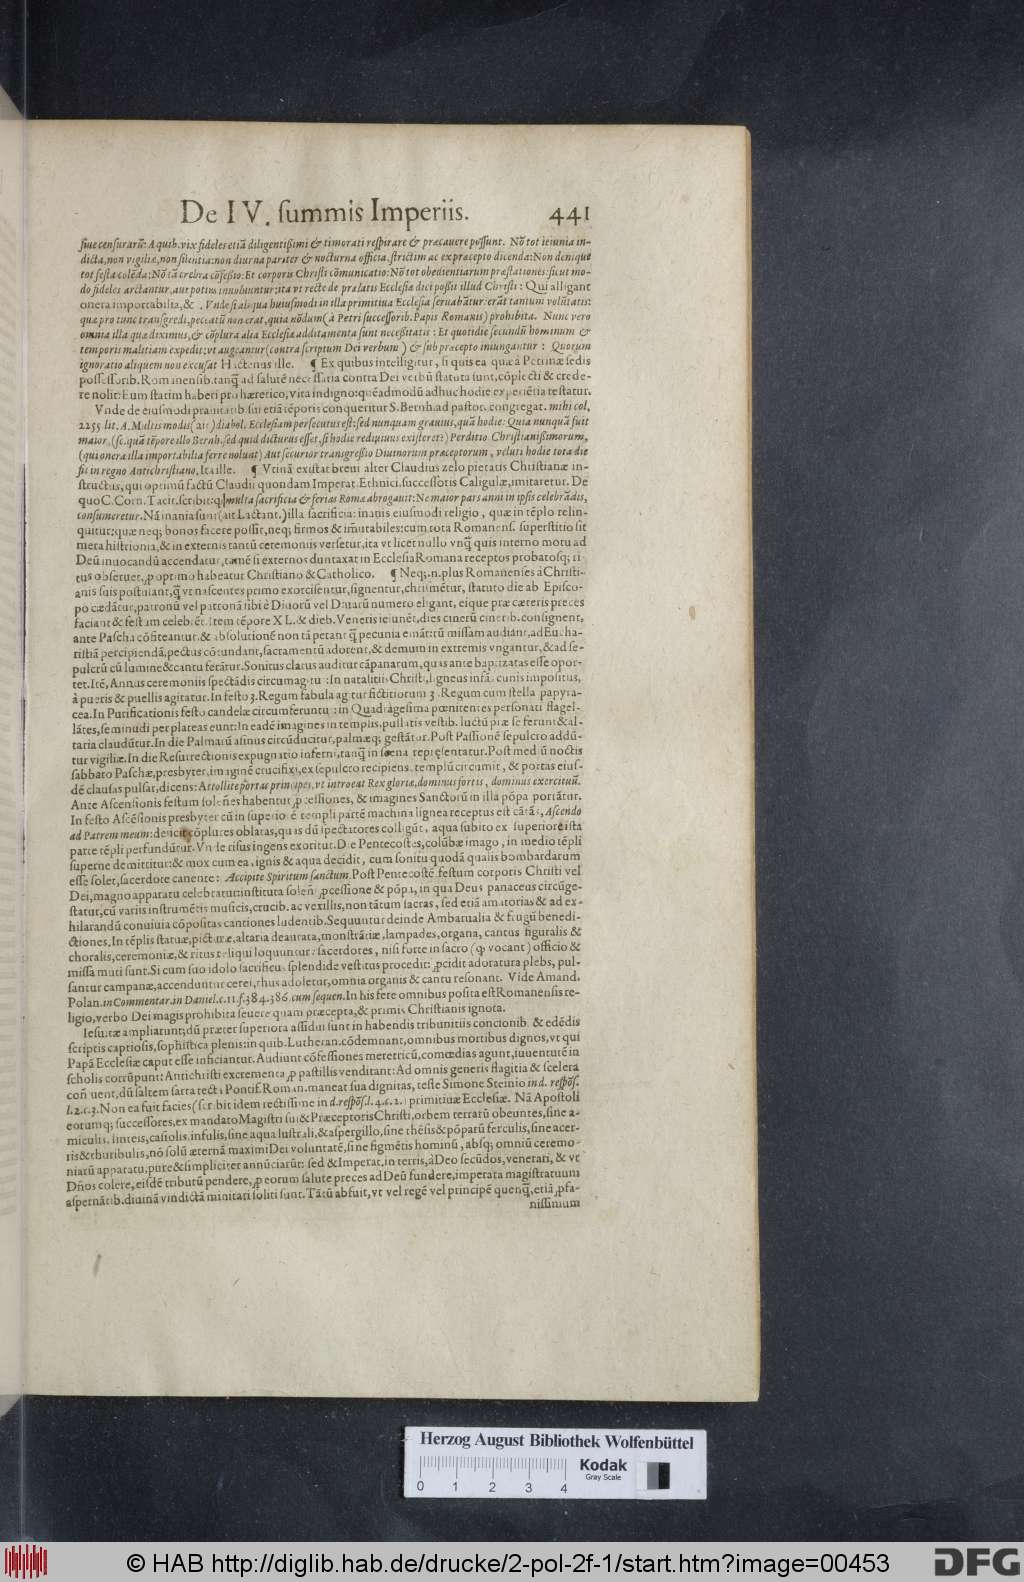 De IV. summis Imperiis. 441
siue censurarũ: A quib. vix fideles etiã diligentißimi & timorati respirare & præcauere possunt. Nõ tot ieiunia in-
dicta, non vigiliæ, non silentia: non diurna pariter & nocturna officia. strictim ac ex præcepto dicenda: Non denique
tot festa colēda: Nõ tã crebra cõfeßio: Et corporis Christi cõmunicatio: Nõ tot obedientiarum præstationes: sicut mo-
do fideles arctantur, aut potius inuoluuntur: ita vt recte de prælatis Ecclesiæ dici poßit illud Christi: Qui alligant
onera importabilia, &. Vnde si aliqua huiusmodi in illa primitiua Ecclesia seruabãtur: erãt tantum volũtatis:
quæ pro tunc transgredi, peccatũ non erat, quia nõdum (à Petri successorib. Papis Romanis) prohibita. Nunc vero
omnia illa quæ diximus, & cõplura alia Ecclesiæ additamenta sunt neceßitatis: Et quotidie secundũ hominum &
temporis malitiam expedit: vt augeantur (contra scriptum Dei verbum) & sub præcepto iniungantur: Quorum
ignoratio aliquem non excusat Hactenus ille. ¶ Ex quibus intelligitur, si quis ea quæ à Petrinæ sedis
possessorib. Romanensib. tanq̃ ad salutē necessaria contra Dei verbũ statuta sunt, cõplecti & crede-
re nolit: Eum statim haberi pro hæretico, vita indigno: quēadmodũ adhuc hodie experiētia testatur.
Vnde de eiusmodi prauitatib. sui etiã tēporis conqueritur S. Bernh. ad pastor. congregat. mihi col,
2255 lit. A. Multis modis (ait) diabol. Ecclesiam persecutus est: sed nunquam grauius, quã hodie: Quia nunquã fuit
maior, (sc. quã tēpore illo Bernh. sed quid dicturus esset, si hodie rediuiuus existeret?) Perditio Christianißimorum,
(qui onera illa importabilia ferre nolunt) Aut securior transgreßio Diuinorum præceptorum, veluti hodie tota die
fit in regno Antichristiano, Ita ille. ¶ Vtinã existat breui alter Claudius zelo pietatis Christianæ in-
structus, qui optimũ factũ Claudii quondam Imperat. Ethnici. successoris Caligulæ, imitaretur. De
quo C. Corn. Tacit. scribit: ꝙ multa sacrificia & ferias Romæ abrogauit: Ne maior pars anni in ipsis celebrãdis,
consumeretur. Nã inania sunt (ait Lactant.) illa sacrificia: inanis eiusmodi religio, quæ in tēplo relin-
quitur: quæ neq; bonos facere possit, neq; firmos & immutabiles: cum tota Romanens. superstitio sit
mera histrionia, & in externis tantũ ceremoniis versetur, ita vt licet nullo vnq̃ quis interno motu ad
Deũ inuocandũ accendatur, tamē si externos duntaxat in Ecclesia Romana receptos probatosq; ri-
tus obseruet, ꝓ optimo habeatur Christiano & Catholico. ¶ Neq;. n. plus Romanenses à Christi-
anis suis postulant, q̃ vt nascentes primo exorcisentur, signentur, chrismētur, statuto die ab Episco-
po cædãtur, patronũ vel patronã sibi è Diuorũ vel Diuarũ numero eligant, eique præ cæteris preces
faciant & festum celebrēt. Item tēpore XL. & dieb. Veneris ieiunēt, dies cinerũ cinerib. consignent,
ante Pascha cõfiteantur. & absolutionē non tã petant q̃ pecunia emãt: tũ missam audiant, ad Eucha-
ristiã percipiendã, pectus cõtundant, sacramentũ adorent, & demum in extremis vngantur, & ad se-
pulcrũ cũ lumine & cantu ferãtur. Sonitus clarus auditur cãpanarum, quas ante baptizatas esse opor-
tet. Itē, Annus ceremoniis spectãdis circumagitur: In natalitiis Christi, ligneus infãs cunis impositus,
à pueris & puellis agitatur. In festo 3. Regum fabula agitur fictitiorum 3. Regum cum stella papyra-
cea. In Purificationis festo candelæ circumferuntur: in Quadragesima pœnitentes personati flagel-
lãtes, seminudi per plateas eunt: In eadē imagines in templis, pullatis vestib. luctũ præ se ferunt & al-
taria claudũtur. In die Palmarũ asinus circũducitur, palmæq; gestãtur. Post Passionē sepulcro addũ-
tur vigiliæ. In die Resurrectionis expugnatio inferni, tanq̃ in scena repręsentatur. Post mediũ noctis
sabbato Paschæ, presbyter, imaginē crucifixi, ex sepulcro recipiens, templũ circumit, & portas eius-
dē clausas pulsat, dicens: Attollite portas principes, vt introeat Rex gloriæ, dominus fortis, dominus exercituũ.
Ante Ascensionis festum solennes habentur ꝓcessiones, & imagines Sanctorũ in illa põpa portãtur.
In festo Ascēsionis presbyter cũ in superiorē templi partē machina lignea receptus est cãtãs, Ascendo
ad Patrem meum: deiicit cõplures oblatas, quas dũ spectatores colligũt, aqua subito ex superiore ista
parte tēpli perfundũtur. Vnde risus ingens exoritur. Die Pentecostes, colũbæ imago, in medio tēpli
superne demittitur: & mox cum ea, ignis & aqua decidit, cum sonitu quodã qualis bombardarum
esse solet, sacerdote canente: Accipite Spiritum sanctum. Post Pentecostē. festum corporis Christi vel
Dei, magno apparatu celebratur: instituta solenni ꝓcessione & põpa, in qua Deus panaceus circũge-
statur, cũ variis instrumētis musicis, crucib. ac vexillis, non tãtum sacras, sed etiã amatorias & ad ex-
hilarandũ conuiuia cõpositas cantiones ludentib. Sequuntur deinde Ambarualia & frugũ benedi-
ctiones, In tēplis statuæ, picturæ, altaria deaurata, monstrãtiæ, lampades, organa, cantus figuralis &
choralis, ceremoniæ, & ritus reliqui loquuntur: sacerdotes, nisi forte in sacro (ꝙ vocant) officio &
missa muti sunt. Si cum suo idolo sacrificus splendide vestitus procedit: ꝓcidit adoratura plebs, pul-
santur campanæ, accenduntur cerei, thus adoletur, omnia organis & cantu resonant. Vide Amand.
Polan. in Commentar. in Daniel. c. 11. f. 384. 386. cum sequen. In his fere omnibus posita est Romanensis re-
ligio, verbo Dei magis prohibita seuere quam præcepta, & primis Christianis ignota.
Iesuitæ ampliarunt; dũ præter superiora assidui sunt in habendis tribunitiis concionib. & edēdis
scriptis captiosis, sophistica plenis: in quib. Lutheran. cõdemnant, omnibus mortibus dignos, vt qui
Papã Ecclesiæ caput esse inficiantur. Audiunt cõfessiones meretricũ, comœdias agunt, iuuentutē in
scholis corrũpunt: Antichristi excrementa ꝓ pastillis venditant: Ad omnis generis flagitia & scelera
conniuent, dũ saltem sarta tecta Pontif. Roman. maneat sua dignitas, teste Simone Steinio in d. respõs.
l. 2. c. 3. Non ea fuit facies (scribit idem rectissime in d. respõs. l. 4. c. 2.) primitiuæ Ecclesiæ. Nã Apostoli
eorumq; successores, ex mandato Magistri sui & Præceptoris Christi, orbem terrarũ obeuntes, sine a-
miculis, linteis, casiolis, infulis, sine aqua lustrali, & aspergillo, sine thēsis & põparũ ferculis, sine acer-
ris & thuribulis, nõ solũ æternã maximi Dei voluntatē, sine figmētis hominũ, absq; omniũ ceremo-
niarũ apparatu, pure & simpliciter annũciarũt: sed & Imperat, in terris, à Deo secũdos, venerari, & vt
Dños colere, eisdē tributũ pendere, ꝓ eorum salute preces ad Deũ fundere, imperata magistratuum
aspernãtib. diuinã vindictã minitari soliti sunt. Tãtũ abfuit, vt vel regē vel principē quenq̃, etiã ꝓfa-
nissimum
Herzog August Bibliothek Wolfenbüttel
Kodak
Gray Scale
0 1 2 3 4
© HAB http://diglib.hab.de/drucke/2-pol-2f-1/start.htm?image=00453
DFG